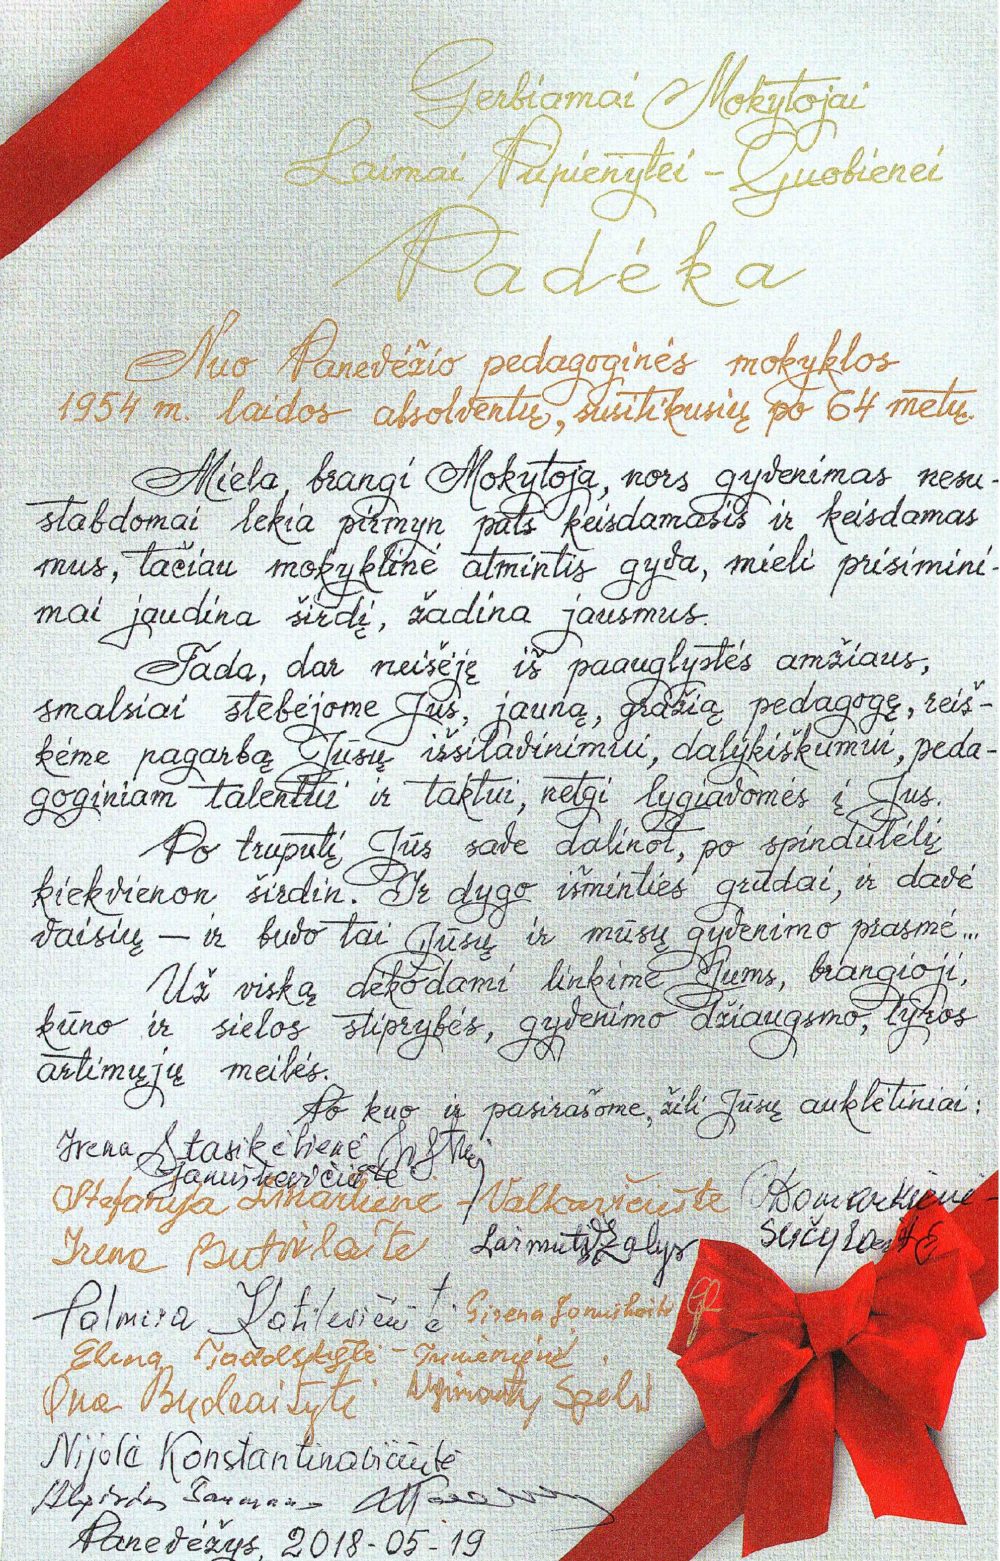 Gerbiamai Mokytojai
Laimai Papienytei - Guobienei
Padėka
Nuo Panevėžio pedagoginės mokyklos
1954 m. laidos absolventų, susitikusių po 64 metų.
Miela, brangi Mokytoja, nors gyvenimas nesu-
stabdomai lekia pirmyn pats keisdamasis ir keisdamas
mus, tačiau mokyklinė atmintis gyva, mieli prisimini-
mai jaudina širdį, žadina jausmus.
Tada, dar neišėję iš paauglystės amžiaus,
smalsiai stebėjome Jus, jauną, gražią pedagogę, reiš-
kėme pagarbą Jūsų išsilavinimui, dalykiškumui, peda-
goginiam talentui ir taktui, netgi lygiavomės į Jus.
Po truputį Jūs save dalinot, po spindulėlį
kiekvienon širdin. Ir dygo išminties grūdai, ir davė
vaisių – ir buvo tai Jūsų ir mūsų gyvenimo prasmė...
Už viską dėkodami linkime Jums, brangioji,
kūno ir sielos stiprybės, gyvenimo džiaugsmo, tyros
artimųjų meilės.
Po kuo ir pasirašome, žili Jūsų auklėtiniai:
Irena Stasikėlienė
Januškevičiūtė
Stefanija - Valkavičiūtė Domarkienė -
Irena Butvilaitė Žalys
Palmira Katilevičiūtė Girena Januškaitė
Elena
Ona Budraitytė
Nijolė Konstantinavičiūtė
Panevėžys, 2018-05-19